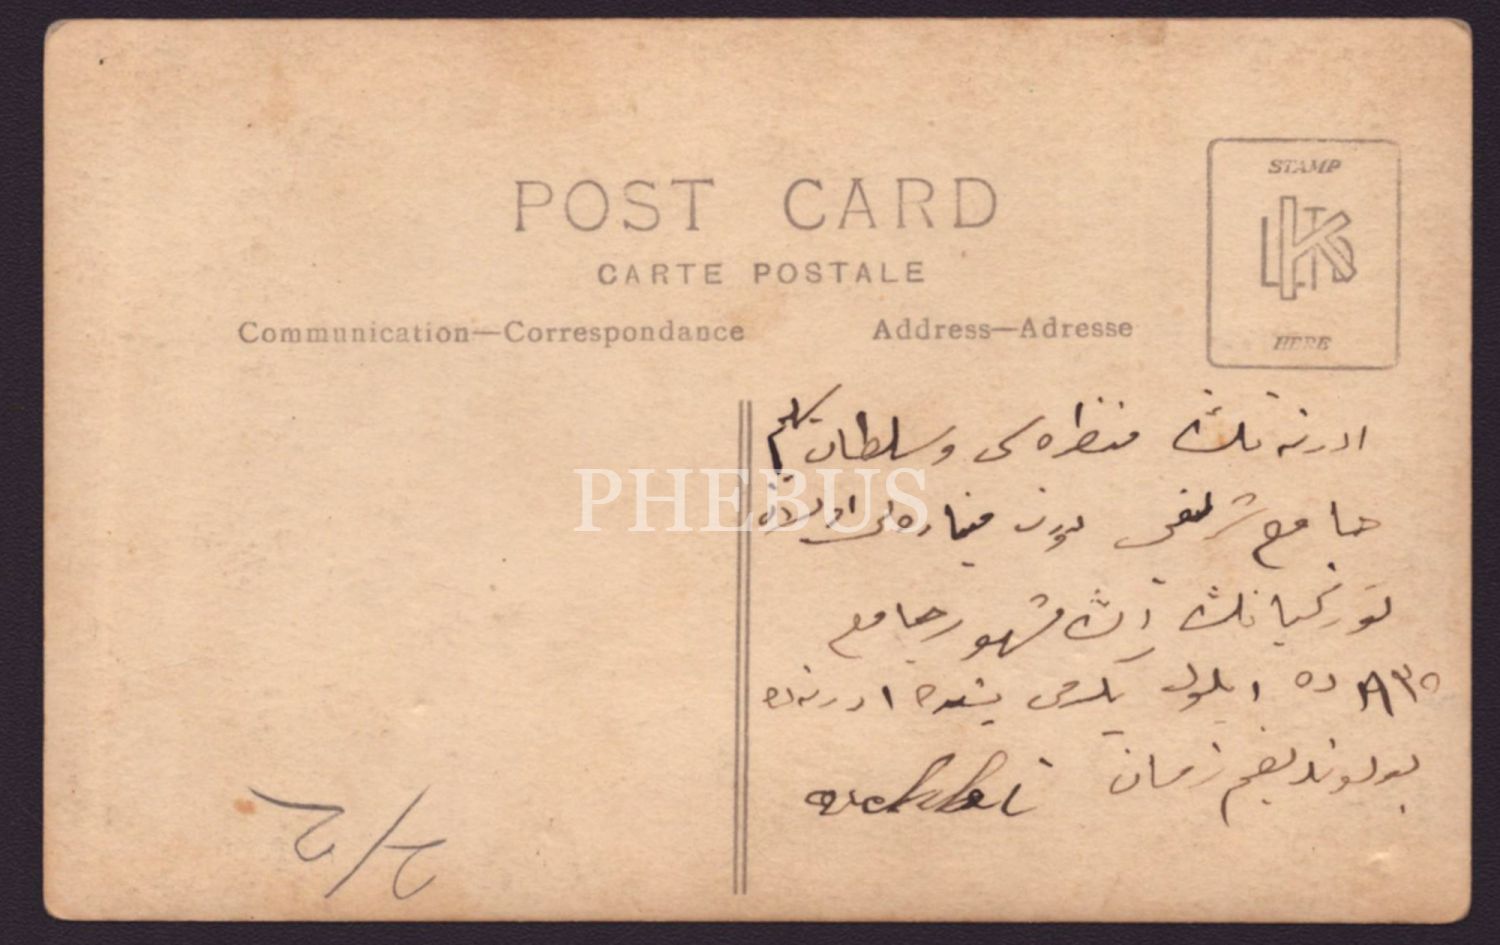 POST CARD
CARTE POSTALE
Communication—Correspondance
Address—Adresse
STAMP
HERE
ادرنه نك منظره سى و سلطان سليم
جامع شريفى دورت مناره لى اولان
توركيانك اڭ مشهور جامع
ده ايلول يكرمى بشده ادرنه ده ٣٥
بولونديغم زمان
PHEBUS